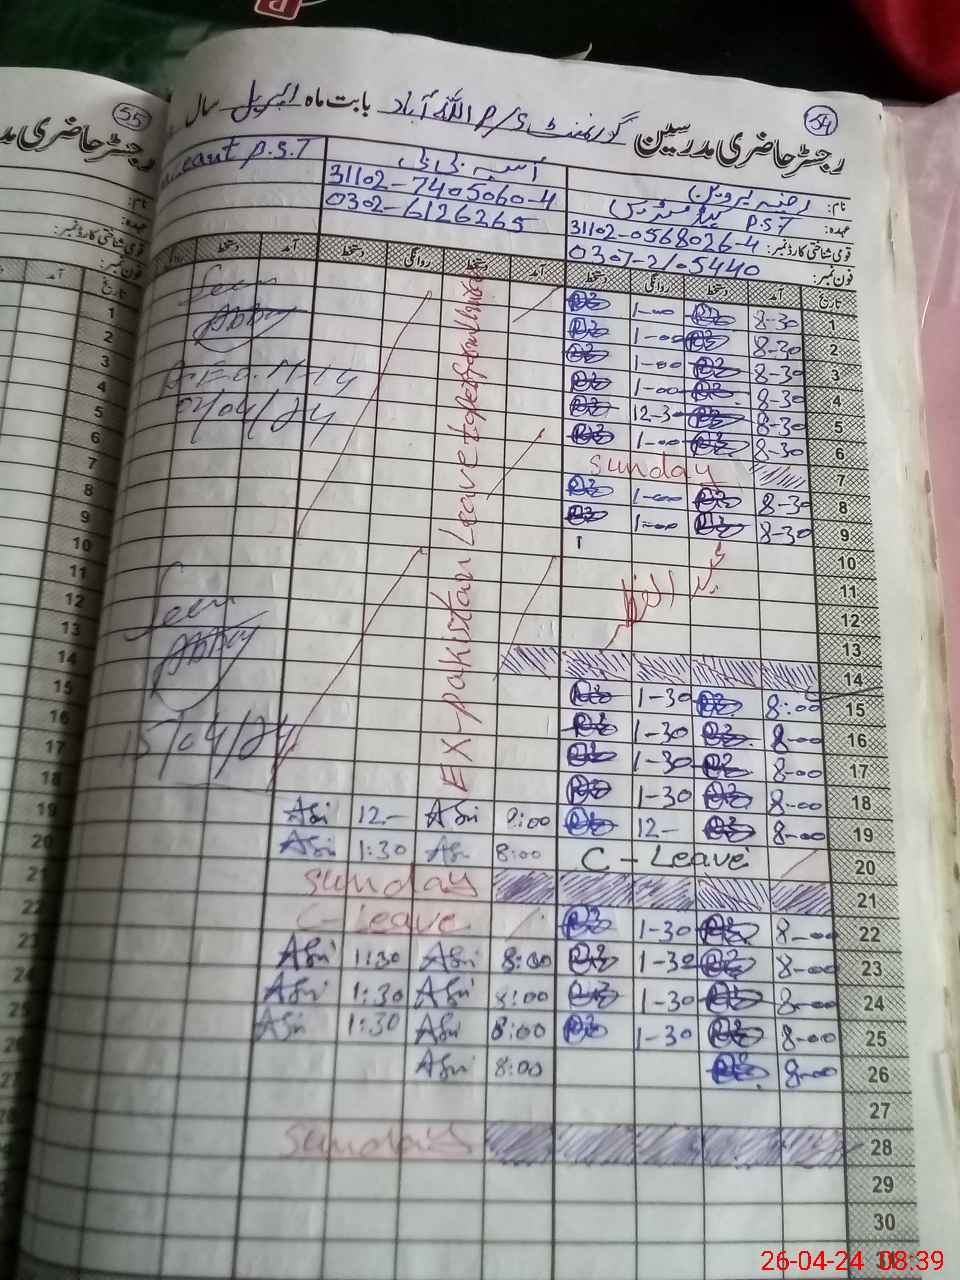 55
54
رجسٹر حاضری مدرسین گورنمنٹ P/S اللہ آباد بابت ماہ اپریل سال
نام: رضیہ پروین
آسیہ بی بی
عہدہ: ہیڈ مسٹریس P.S.T
قومی شناختی کارڈ نمبر: 31102-0568026-4
31102-7405060-4
فون نمبر: 0301-2105440
0302-6126265
Vacant P.S.T
تاریخ آمد دستخط روانگی دستخط آمد دستخط روانگی دستخط آمد دستخط روانگی
1 8-30 1-00
2 8-30 1-00
3 8-30 1-00
4 8-30 1-00
5 8-30 12-30
6 8-30 1-00
7 Sunday
8 8-30 1-00
9 8-30 1-00
10
11
12
13
14
عید الفطر
15 8:00 1-30
16 8-00 1-30
17 8-00 1-30
18 8-00 1-30
EX-Pakistan Leave
19 8-00 12- 8:00 Asi 12- Asi
20 C-Leave 8:00 Asi 1:30 Asi
21 Sunday
22 8-00 1-30 C-Leave
23 8-00 1-30 8:00 Asi 1:30 Asi
24 8-00 1-30 8:00 Asi 1:30 Asi
25 8-00 1-30 8:00 Asi 1:30 Asi
26 8-00 8:00 Asi
27
28 Sunday
29
30
31
Seen
A.E.O.M-14
02/04/24
Seen
15/04/24
رجسٹر حاضری مدر
نام:
عہدہ:
قومی شناختی کارڈ نمبر:
فون نمبر:
تاریخ آمد
1
2
3
4
5
6
7
8
9
10
11
12
13
14
15
16
17
18
19
20
21
22
23
24
25
26
27
26-04-24 08:39